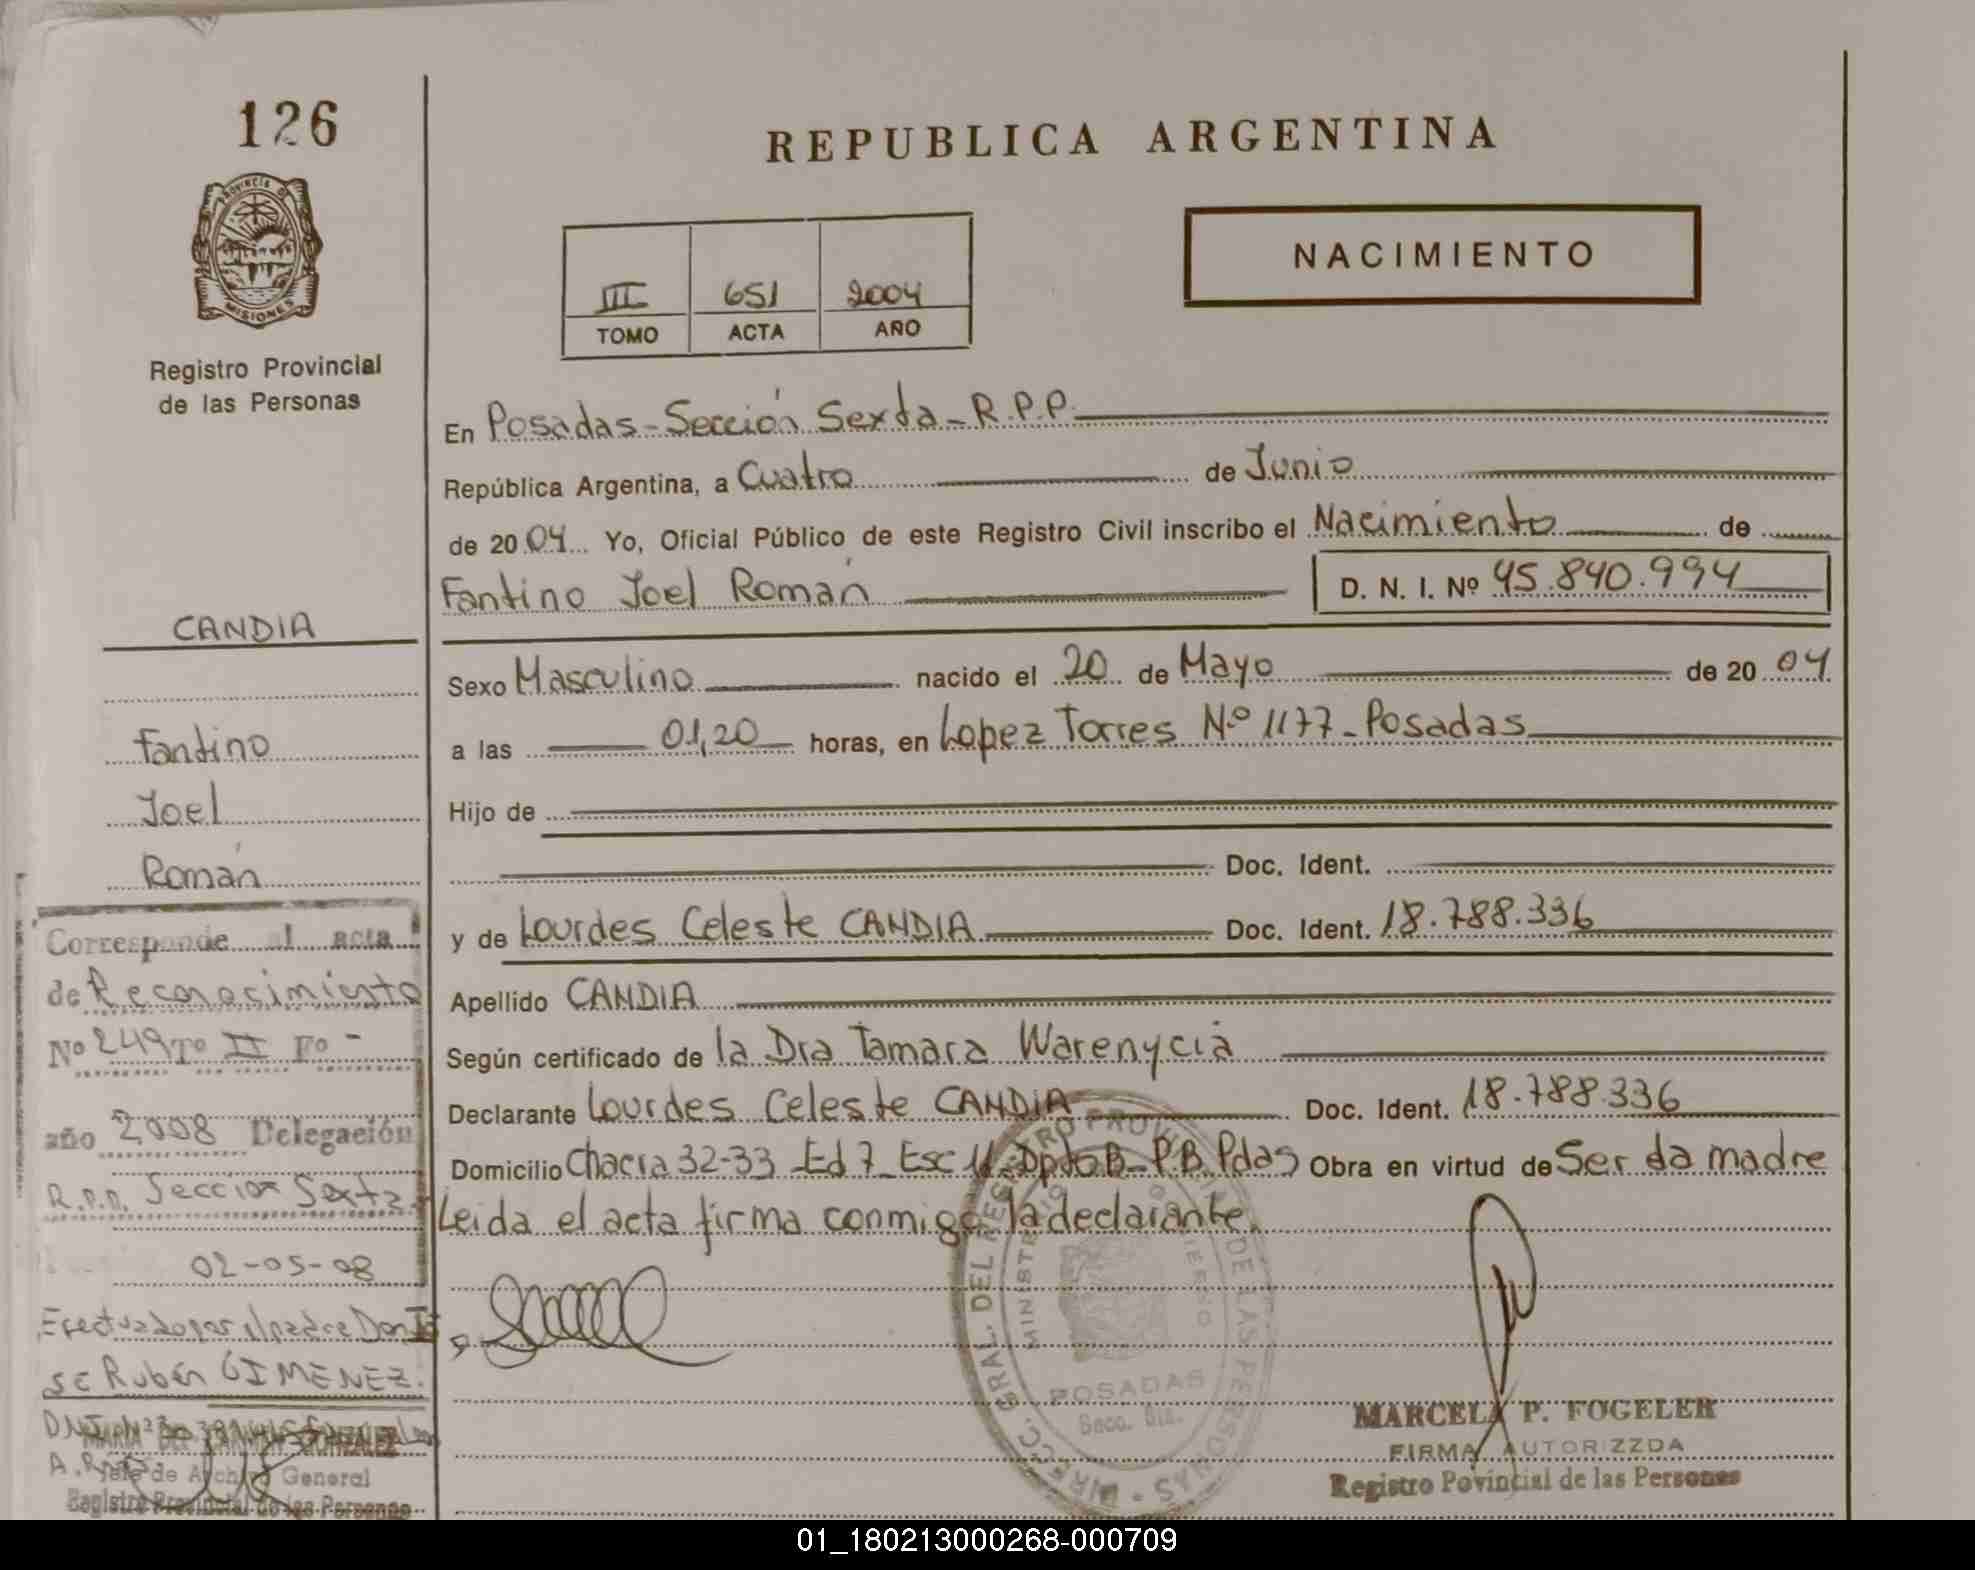 126
PROVINCIA DE
MISIONES
Registro Provincial
de las Personas
CANDIA
Fantino
Joel
Román
Corresponde al acta
de Reconocimiento
Nº 249 Tº II Fº -
año 2008 Delegación
R.P.P. Seccion Sexta.
02-05-08
Efectuado por el padre Don Jo
se Rubén GIMENEZ.
MARIA DEL CARMEN GONZALEZ
Jefe de Archivo General
Registro Provincial de las Personas
REPUBLICA ARGENTINA
NACIMIENTO
III 651 2004
TOMO ACTA AÑO
En Posadas-Sección Sexta-R.P.P.
República Argentina, a Cuatro de Junio
de 2004 Yo, Oficial Público de este Registro Civil inscribo el Nacimiento de
Fantino Joel Román D. N. I. Nº 45.840.994
Sexo Masculino nacido el 20 de Mayo de 2004
a las 01,20 horas, en Lopez Torres Nº 1177-Posadas
Hijo de
Doc. Ident.
y de Lourdes Celeste CANDIA Doc. Ident. 18.788.336
Apellido CANDIA
Según certificado de la Dra Tamara Warenycia
Declarante Lourdes Celeste CANDIA Doc. Ident. 18.788.336
Domicilio Chacra 32-33 Ed 7 Esc 11 Dpto B-P.B. Pdas Obra en virtud de Ser la madre
Leida el acta firma conmigo la declarante.
DIRECC. GRAL. DEL REGISTRO PROVINCIAL DE LAS PERSONAS
MINISTERIO DE GOBIERNO
POSADAS
Secc. 6ta.
MARCELA P. FOGELER
FIRMA AUTORIZZDA
Registro Povincial de las Personas
01_180213000268-000709